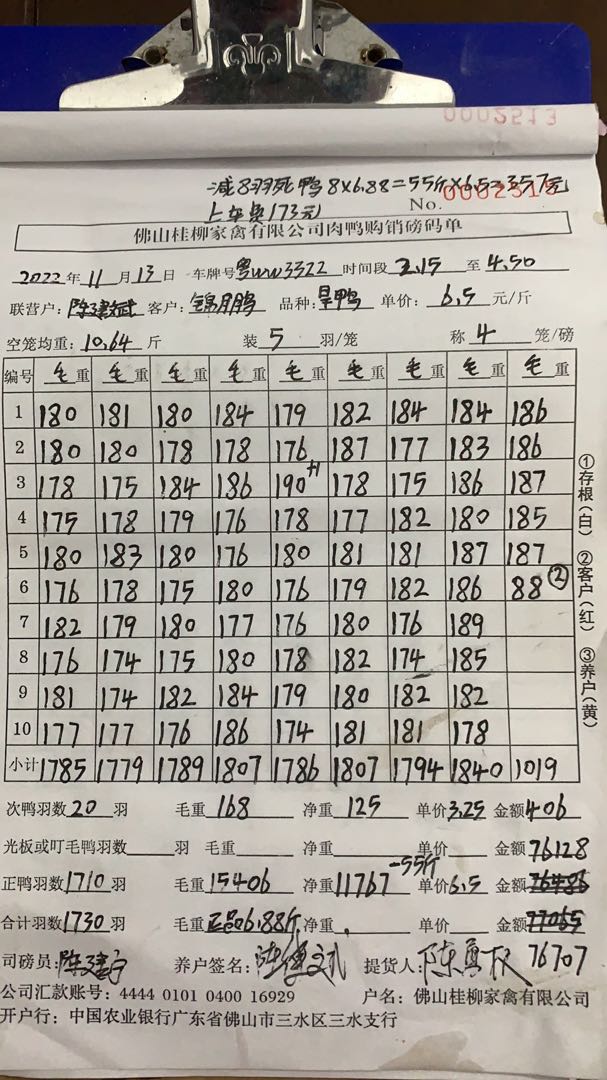 0002513
减8羽死鸭 8×6.88=55斤×6.5=357元
No. 0002513
上车臭173元
佛山桂柳家禽有限公司肉鸭购销磅码单
2022年11月13日 车牌号粤WW3322 时间段2.15至4.50
联营户:陈建斌 客户:锦鹏 品种:旱鸭 单价:6.5元/斤
空笼均重:10.64斤 装5羽/笼 称4笼/磅
编号 毛重 毛重 毛重 毛重 毛重 毛重 毛重 毛重 毛重
1 180 181 180 184 179 182 184 184 186
2 180 180 178 178 176 187 177 183 186
3 178 175 184 186 190+1 178 175 186 187
4 175 178 179 176 178 177 182 180 185
5 180 183 180 176 180 181 181 187 187
6 176 178 175 180 176 179 182 186 88②
7 182 179 180 177 176 180 176 189
8 176 174 175 180 178 182 174 185
9 181 174 182 184 179 180 182 182
10 177 177 176 186 174 181 181 178
小计 1785 1779 1789 1807 1786 1807 1794 1840 1019
①存根(白) ②客户(红) ③养户(黄)
次鸭羽数20羽 毛重168 净重125 单价3.25 金额406
光板或叮毛鸭羽数 羽 毛重 净重 单价 金额76128
正鸭羽数1710羽 毛重15406 净重11767-55斤 单价6.5 金额76486
合计羽数1730羽 毛重正品6.88斤 净重 单价 金额77065
76707
司磅员: 养户签名: 提货人:
公司汇款账号:4444 0101 0400 16929 户名:佛山桂柳家禽有限公司
开户行:中国农业银行广东省佛山市三水区三水支行